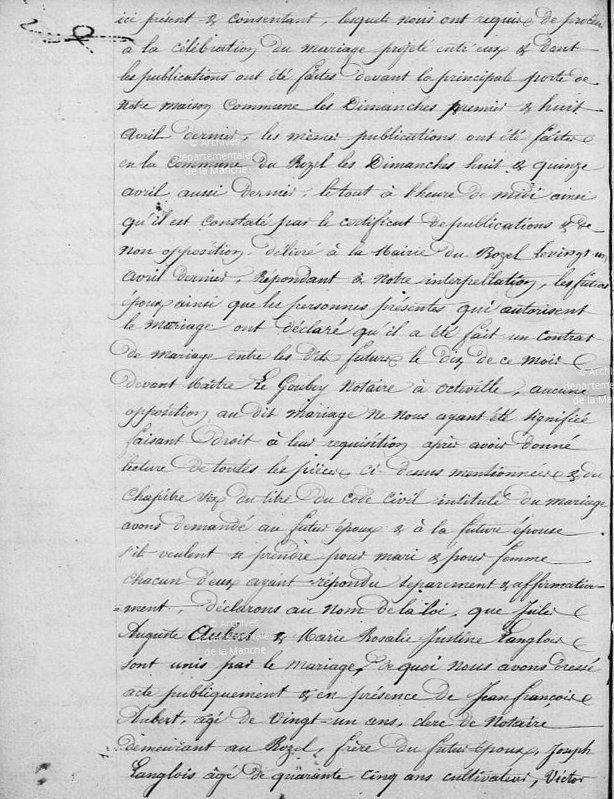 ici présent & consentant, lesquels nous ont requis de procéder
à la célébration du mariage projeté entr'eux & dont
les publications ont été faites devant la principale porte de
notre maison Commune les Dimanches premier & huit
avril dernier, les mêmes publications ont été faites
en la commune du Rozel les Dimanches huit & quinze
avril aussi dernier : le tout à l'heure de midi ainsi
qu'il est constaté par le certificat de publications & de
non opposition, délivré à la Mairie du Rozel le vingt un
avril dernier, Répondant à notre interpellation, les futurs
époux ainsi que les personnes présentes qui autorisent
le mariage ont déclaré qu'il a été fait un contrat
de mariage entre les dits futurs le dix de ce mois
devant Maître Le Goubey Notaire à Octeville, aucune
opposition au dit mariage ne nous ayant été signifiée
faisant droit à leur requisition après avoir donné
lecture de toutes les pièces ci-dessus mentionnées & du
chapitre six du titre du Code Civil intitulé du mariage
avons demandé au futur époux & à la future épouse
s'ils veulent se prendre pour mari & pour femme
chacun d'eux ayant répondu séparement & affirmative-
-ment, déclarons au nom de la loi, que Jules
Auguste Aubert & Marie Rosalie Justine Langlois
sont unis par le mariage, de quoi nous avons dressé
acte publiquement & en présence de Jean françois
Aubert, agé de vingt-un ans, clerc de Notaire
demeurant au Rozel, frère du futur époux, Joseph
Langlois âgé de quarante cinq ans cultivateur, Victor
© Archives
départementales
de la Manche
© Archives
départementales
de la Manche
© Archives
départementales
de la Manche